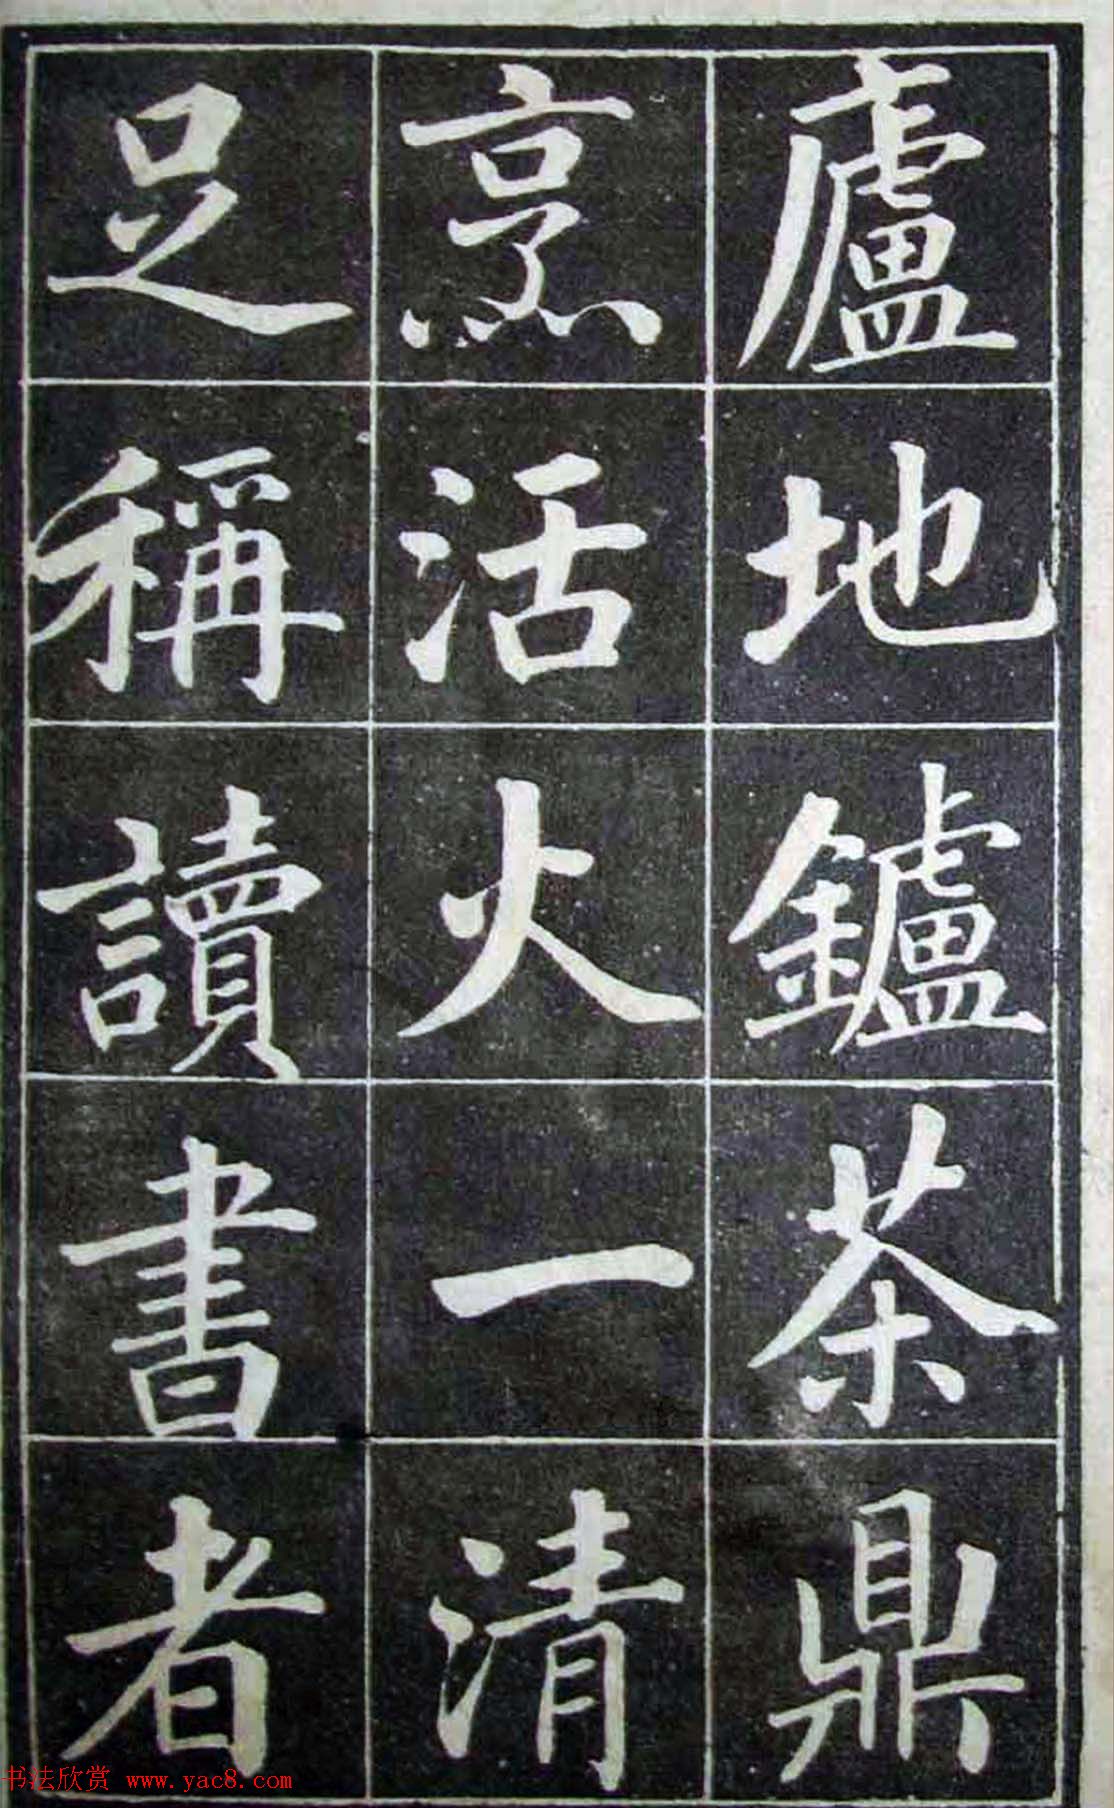 廬地鑪茶鼎
烹活火一清
足稱讀書者
书法欣赏 www.yac8.com